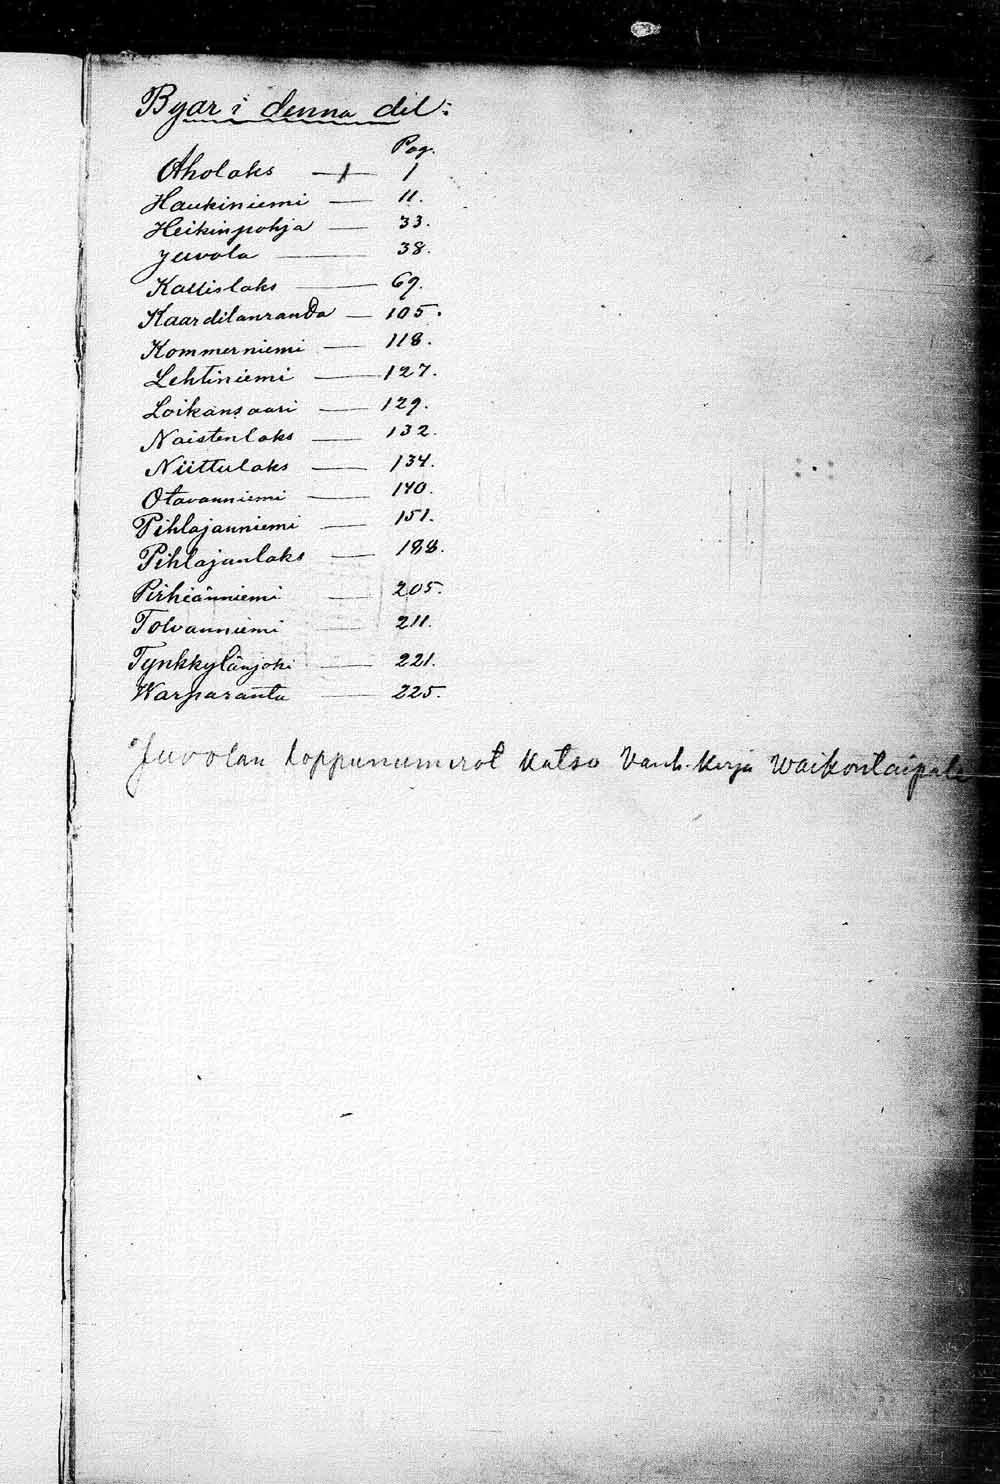 Byar i denna del:
Pag.
Aholaks — 1
Haukiniemi — 11.
Heikinpohja — 33.
Juvola — 38.
Kallislaks — 69.
Kaardilanranda — 105.
Kommerniemi — 118.
Lehtiniemi — 127.
Loikansaari — 129.
Naistenlaks — 132.
Niittulaks — 134.
Otavanniemi — 140.
Pihlajanniemi — 151.
Pihlajanlaks — 188.
Pirhiänniemi — 205.
Tolvanniemi — 211.
Tynkkylänjoki — 221.
Warparanta — 225.
Juvolan loppunumerot katso Vanh. kirja Waikontaipale